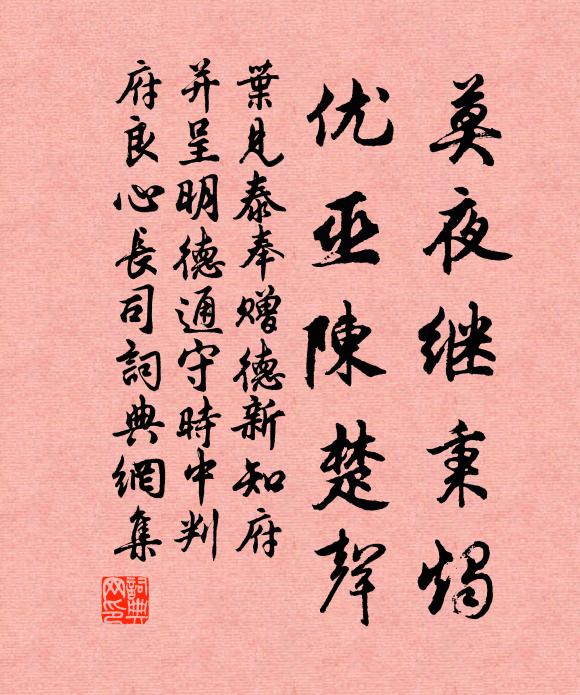 莫夜继秉烛
优巫陳楚聲
葉見泰奉贈德新知府
并呈明德通守時中判
府良心長司詞典網集
詞典網印